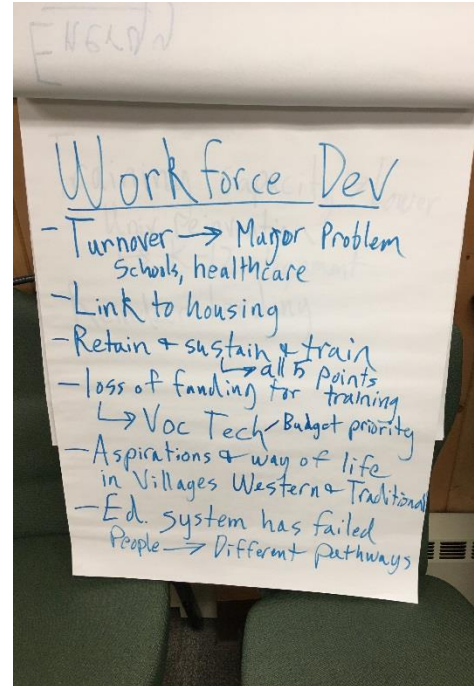 Workforce Dev
- Turnover → Major Problem
Schools, healthcare
- Link to housing
- Retain & sustain & train
↳ all 5 points
- loss of funding for training
↳ Voc Tech / Budget priority
- Aspirations & way of life
in Villages Western & Traditional
- Ed. system has failed
People → Different pathways